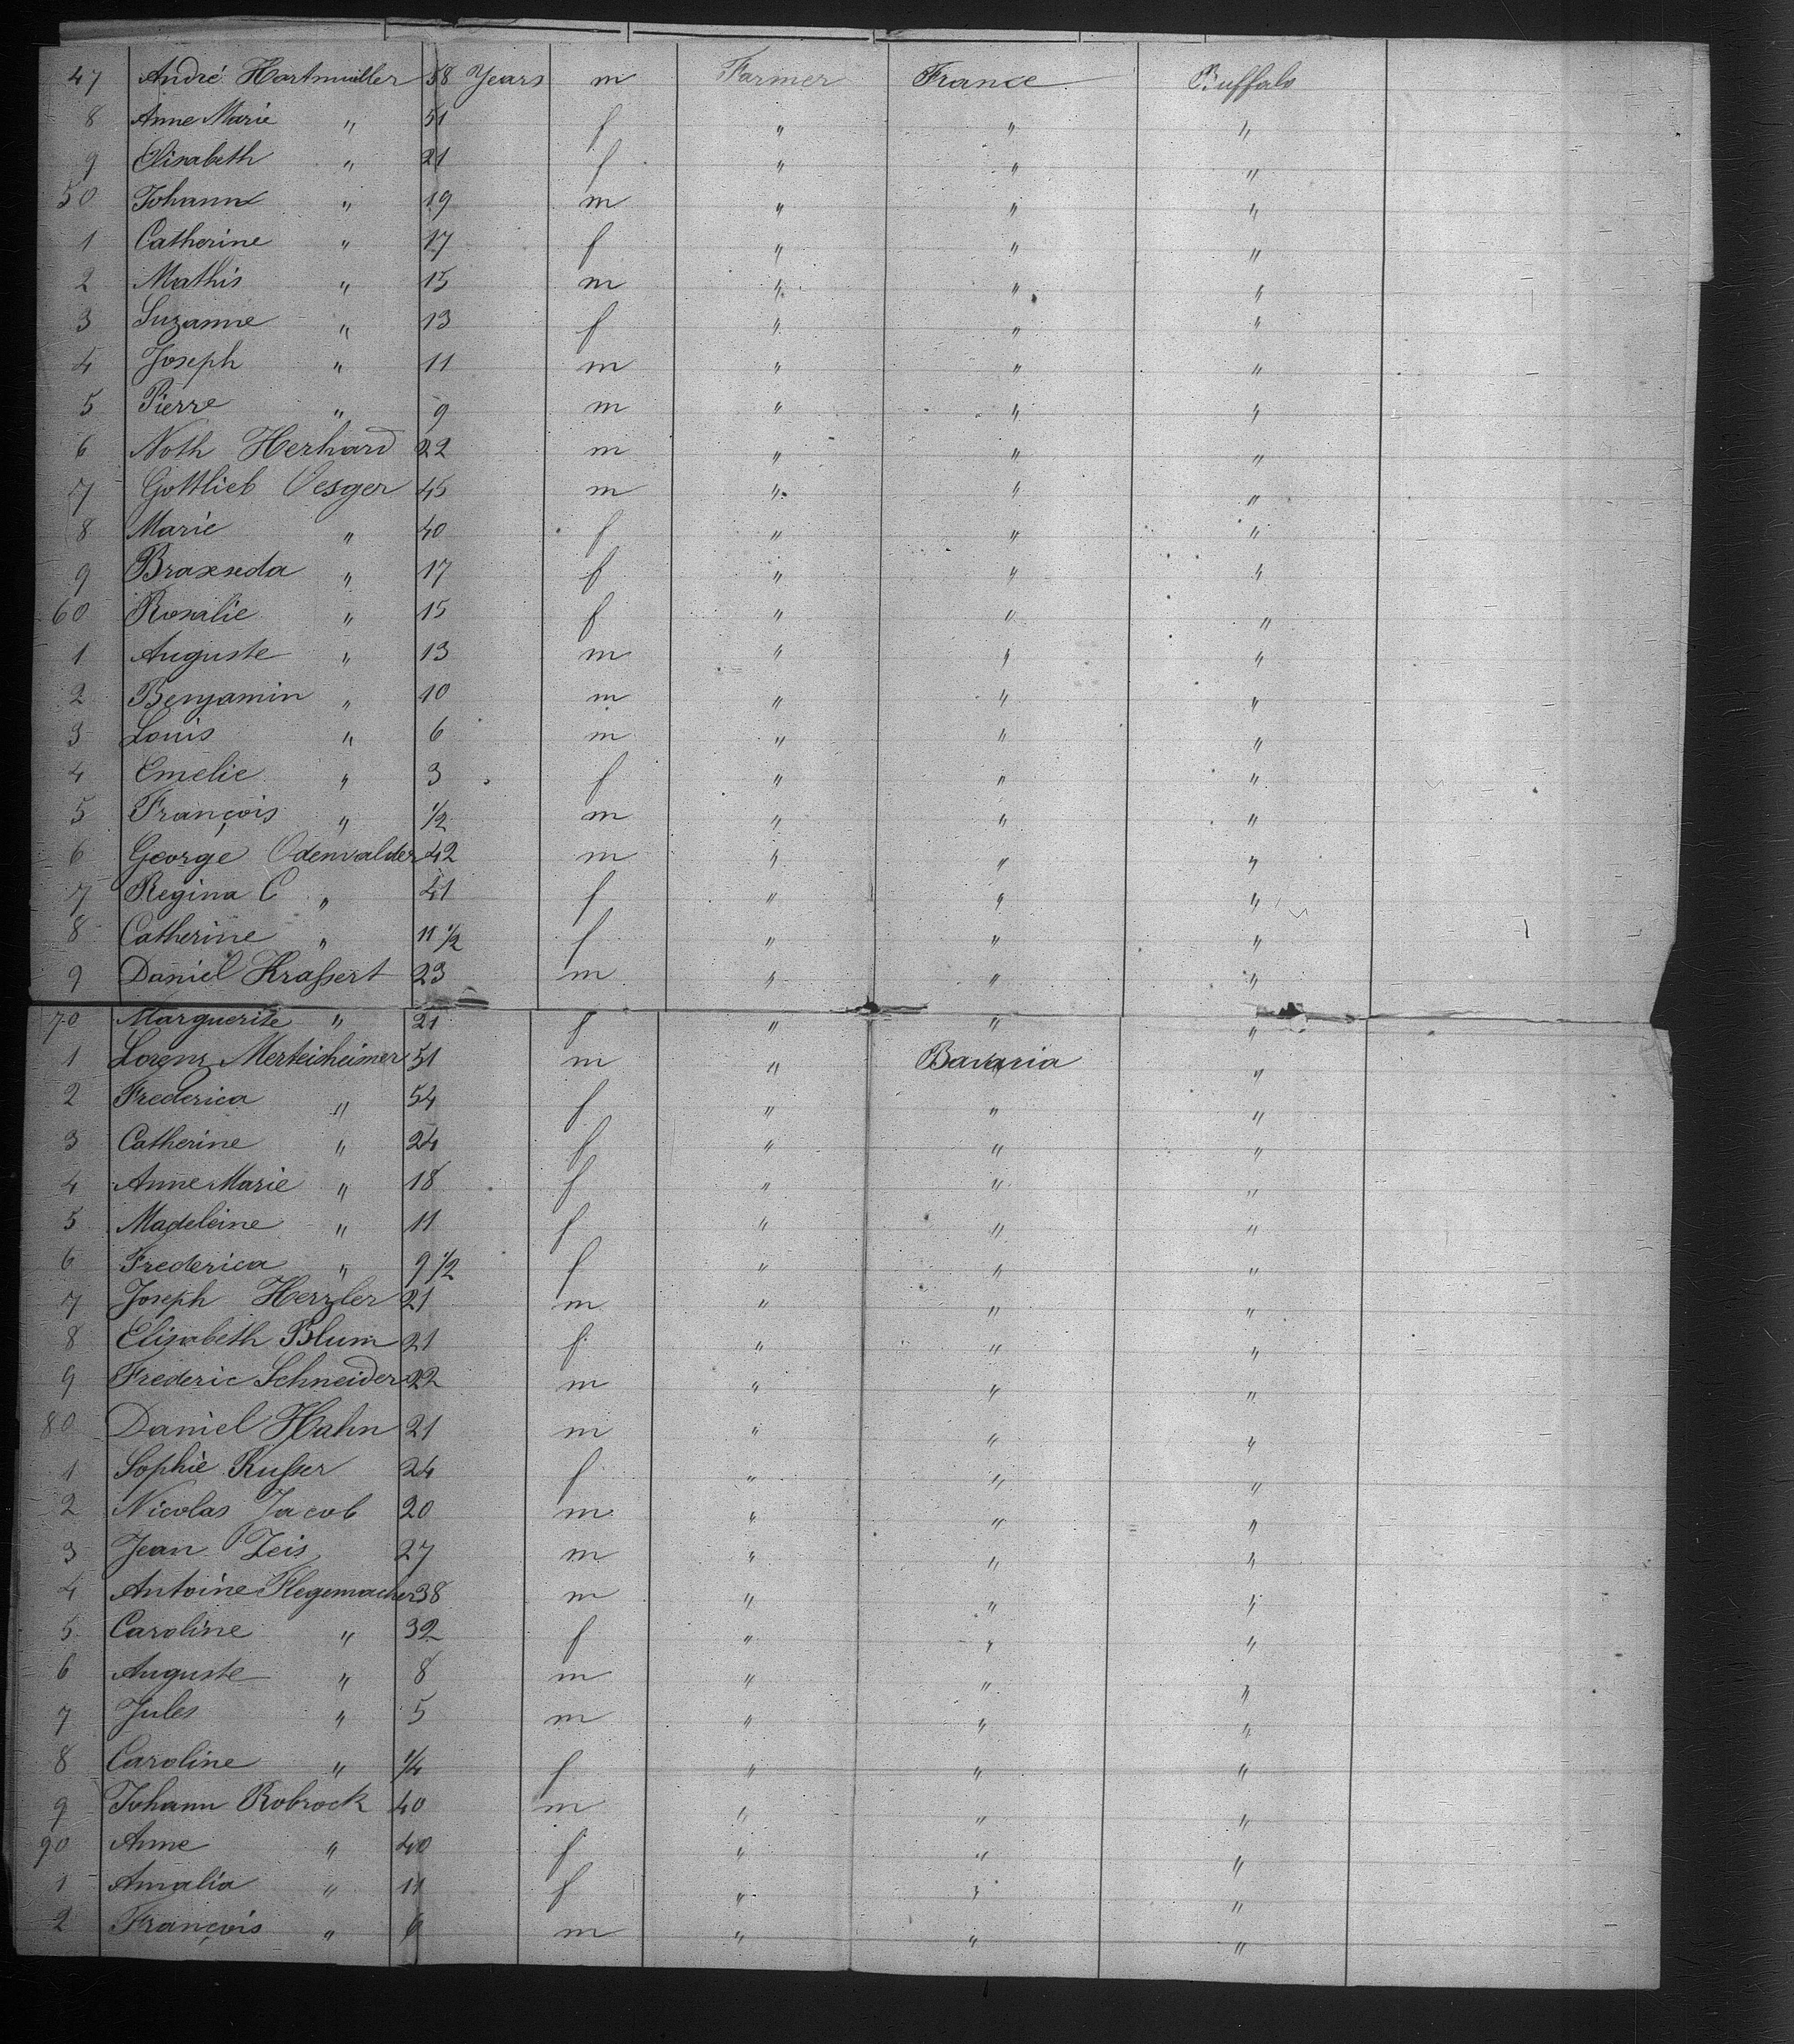 47 André Hartmüller 58 Years m Farmer France Buffalo
8 Anne Marie " 51 f " " "
9 Elisabeth " 21 f " " "
50 Johann " 19 m " " "
1 Catherine " 17 f " " "
2 Mathis " 15 m " " "
3 Suzanne " 13 f " " "
4 Joseph " 11 m " " "
5 Pierre " 9 m " " "
6 Noth Herhard 22 m " " "
7 Gottlieb Oesger 45 m " " "
8 Marie " 40 f " " "
9 Braxeda " 17 f " " "
60 Rosalie " 15 f " " "
1 Auguste " 13 m " " "
2 Benjamin " 10 m " " "
3 Louis " 6 m " " "
4 Emelie " 3 f " " "
5 François " 1/2 m " " "
6 George Odenwalder 42 m " " "
7 Regina C " 41 f " " "
8 Catherine " 11 1/2 f " " "
9 Daniel Krassert 23 m " " "
70 Marguerite " 21 f " " "
1 Lorenz Merteisheimer 51 m " Bavaria "
2 Frederica " 54 f " " "
3 Catherine " 24 f " " "
4 Anne Marie " 18 f " " "
5 Madeleine " 11 f " " "
6 Frederica " 9 1/2 f " " "
7 Joseph Herzler 21 m " " "
8 Elisabeth Blum 21 f " " "
9 Frederic Schneider 22 m " " "
80 Daniel Hahn 21 m " " "
1 Sophie Russer 24 f " " "
2 Nicolas Jacob 20 m " " "
3 Jean Zeis 27 m " " "
4 Antoine Flegemacher 38 m " " "
5 Caroline " 32 f " " "
6 Auguste " 8 m " " "
7 Jules " 5 m " " "
8 Caroline " 1/4 f " " "
9 Johann Robrock 40 m " " "
90 Anne " 40 f " " "
1 Amalia " 11 f " " "
2 François " 6 m " " "